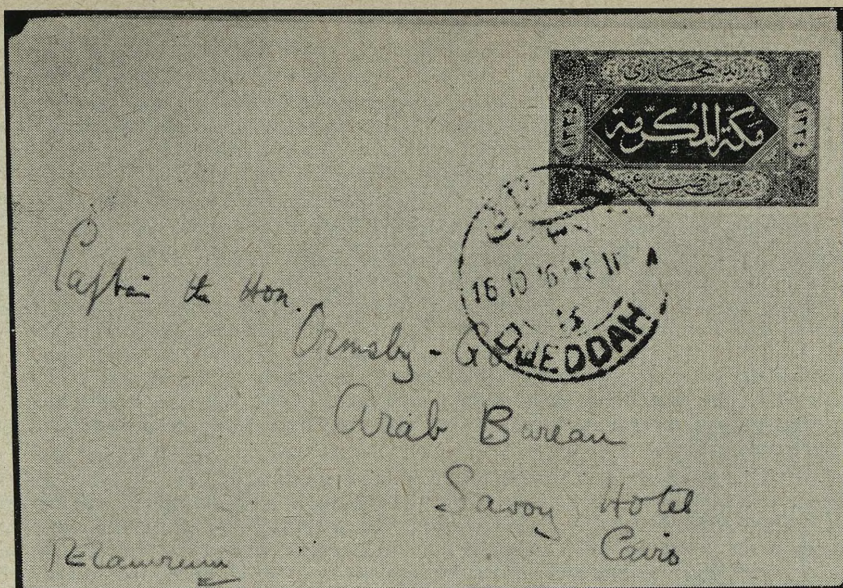 بريد حجازى
١٣٣٤ مكة المكرمة ١٣٣٤
16 10 16
DJEDDAH
Captain the Hon.
Ormsby - Go
Arab Bureau
Savoy Hotel
Cairo
TELawrence